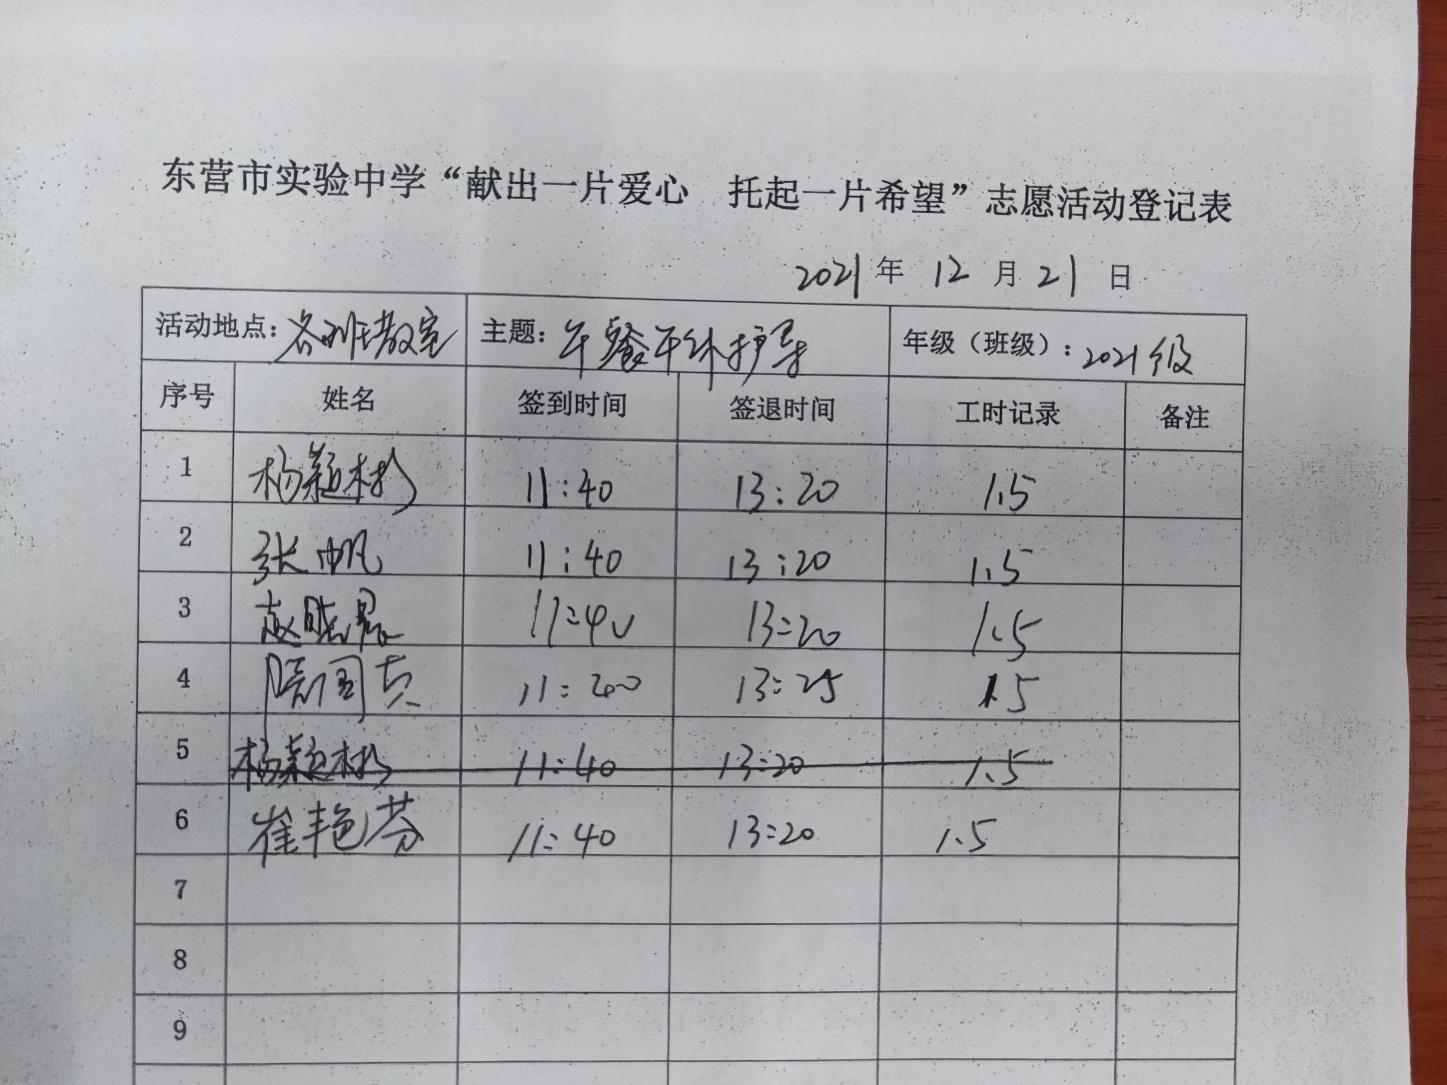 东营市实验中学“献出一片爱心 托起一片希望”志愿活动登记表
2021年 12 月 21 日
活动地点：各班教室 主题：午餐午休护导 年级（班级）：2021级
序号 姓名 签到时间 签退时间 工时记录 备注
1 杨颖彬 11:40 13:20 1.5
2 张帆 11:40 13:20 1.5
3 赵 11:40 13:20 1.5
4 国 11:40 13:25 1.5
5 杨颖彬 11:40 13:20 1.5
6 崔艳芬 11:40 13:20 1.5
7
8
9